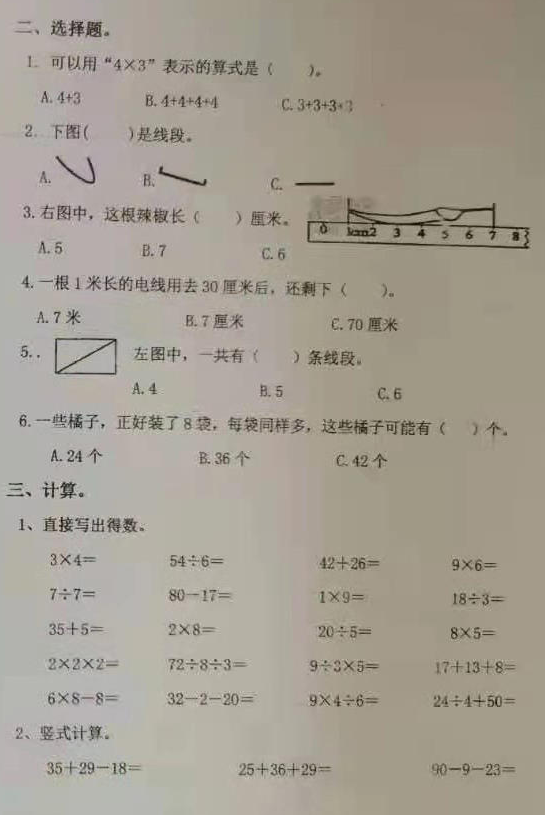 二、选择题。
1. 可以用“4×3”表示的算式是（ ）。
A. 4+3 B. 4+4+4+4 C. 3+3+3+3
2. 下图( )是线段。
A. B. C.
3. 右图中，这根辣椒长（ ）厘米。
0 1cm2 3 4 5 6 7 8
A. 5 B. 7 C. 6
4. 一根1米长的电线用去30厘米后，还剩下（ ）。
A. 7米 B. 7厘米 C. 70厘米
5. . 左图中，一共有（ ）条线段。
A. 4 B. 5 C. 6
6. 一些橘子，正好装了8袋，每袋同样多，这些橘子可能有（ ）个。
A. 24个 B. 36个 C. 42个
三、计算。
1、直接写出得数。
3×4= 54÷6= 42+26= 9×6=
7÷7= 80-17= 1×9= 18÷3=
35+5= 2×8= 20÷5= 8×5=
2×2×2= 72÷8÷3= 9÷3×5= 17+13+8=
6×8-8= 32-2-20= 9×4÷6= 24÷4+50=
2、竖式计算。
35+29-18= 25+36+29= 90-9-23=